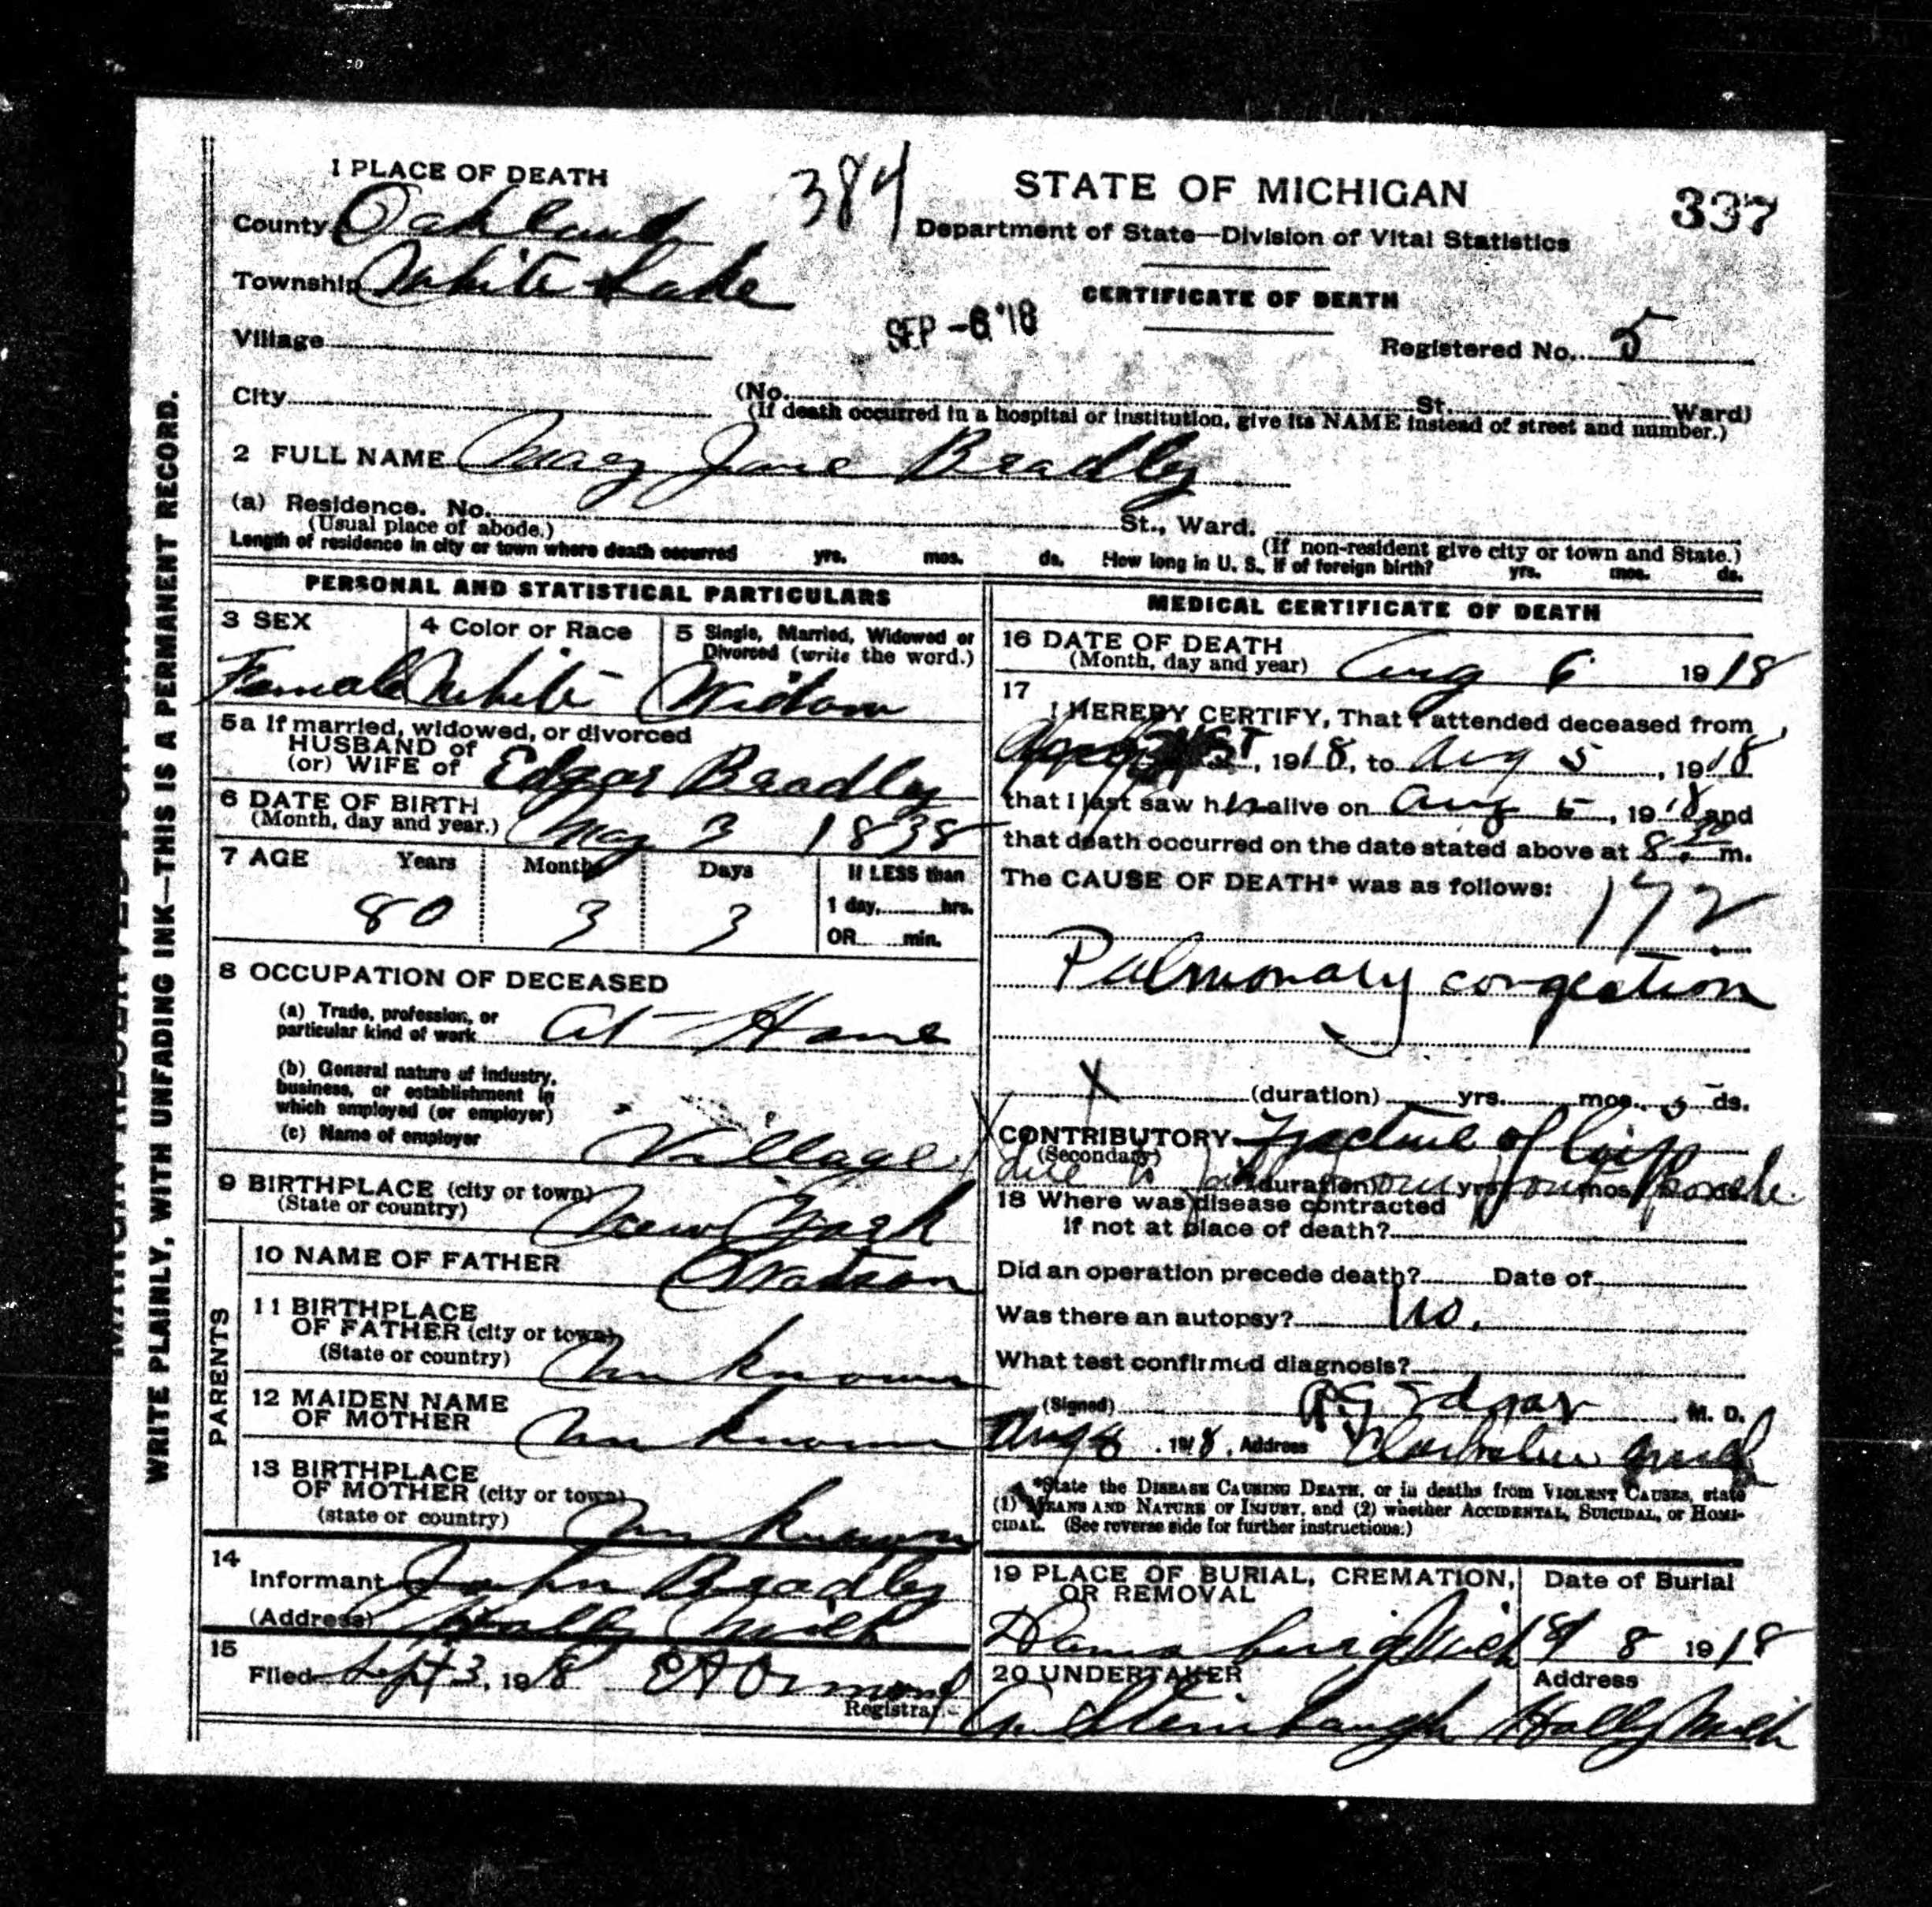 1 PLACE OF DEATH
384
STATE OF MICHIGAN
337
County Oakland
Department of State—Division of Vital Statistics
Township White Lake
CERTIFICATE OF DEATH
SEP -6 '18
Village
Registered No. 5
City (No. St. Ward)
(If death occurred in a hospital or institution, give its NAME instead of street and number.)
2 FULL NAME Mary Jane Bradley
(a) Residence. No. St., Ward.
(Usual place of abode.) (If non-resident give city or town and State.)
Length of residence in city or town where death occurred yrs. mos. ds. How long in U. S., if of foreign birth? yrs. mos. ds.
PERSONAL AND STATISTICAL PARTICULARS
3 SEX
Female
4 Color or Race
White
5 Single, Married, Widowed or
Divorced (write the word.)
Widow
5a If married, widowed, or divorced
HUSBAND of
(or) WIFE of Edgar Bradley
6 DATE OF BIRTH
(Month, day and year.) May 3 1838
7 AGE Years Months Days If LESS than
80 3 3 1 day, hrs.
OR min.
8 OCCUPATION OF DECEASED
(a) Trade, profession, or
particular kind of work At Home
(b) General nature of industry,
business, or establishment in
which employed (or employer)
(c) Name of employer Village
9 BIRTHPLACE (city or town)
(State or country) New York
PARENTS
10 NAME OF FATHER Watson
11 BIRTHPLACE
OF FATHER (city or town)
(State or country) Unknown
12 MAIDEN NAME
OF MOTHER Unknown
13 BIRTHPLACE
OF MOTHER (city or town)
(state or country) Unknown
14
Informant John Bradley
(Address) Holly Mich
15
Filed Sept 3, 1918 E A Ormond
Registrar
MEDICAL CERTIFICATE OF DEATH
16 DATE OF DEATH
(Month, day and year) Aug 6 1918
17
I HEREBY CERTIFY, That I attended deceased from
, 1918, to Aug 5, 1918
that I last saw h alive on Aug 5, 1918 and
that death occurred on the date stated above at 8 30 m.
The CAUSE OF DEATH* was as follows:
172
Pulmonary congestion
X (duration) yrs. mos. 5 ds.
CONTRIBUTORY Fracture of hip
(Secondary)
due to (duration) yrs. mos. ds. porch
18 Where was disease contracted
if not at place of death?
Did an operation precede death? Date of
Was there an autopsy? No.
What test confirmed diagnosis?
(Signed) Edgar M. D.
Aug 8, 1918, Address Mich
*State the DISEASE CAUSING DEATH, or in deaths from VIOLENT CAUSES, state
(1) MEANS AND NATURE OF INJURY, and (2) whether ACCIDENTAL, SUICIDAL, or HOMI-
CIDAL. (See reverse side for further instructions.)
19 PLACE OF BURIAL, CREMATION,
OR REMOVAL
Date of Burial
Mich 8 1918
20 UNDERTAKER Address
Steinbaugh Holly Mich
WRITE PLAINLY, WITH UNFADING INK—THIS IS A PERMANENT RECORD.